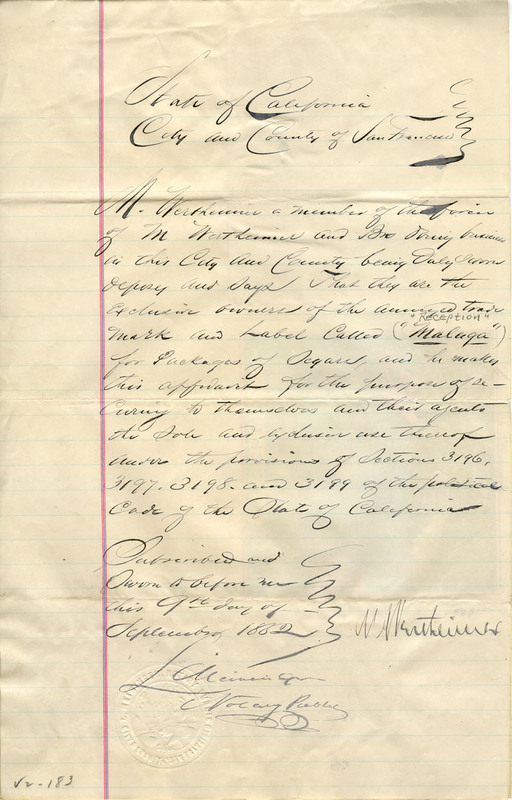 State of California
City and County of San Francisco
M. Wertheimer a member of the firm
of M Wertheimer and Bro doing business
in this City and County being Duly Sworn
deposes and Says That they are the
Exclusive owners of the annexed trade
"RECEPTION"
Mark and Label Called ("Malaga")
for Packages of Segars, and he makes
this affidavit for the purpose of se-
curing to themselves and their agents
the Sole and exclusive use thereof
under the provisions of Sections 3196.
3197. 3198. and 3199 of the political
Code of the State of California
Subscribed and
Sworn to before me
this 9th day of
September 1882
M Wertheimer
Notary Public